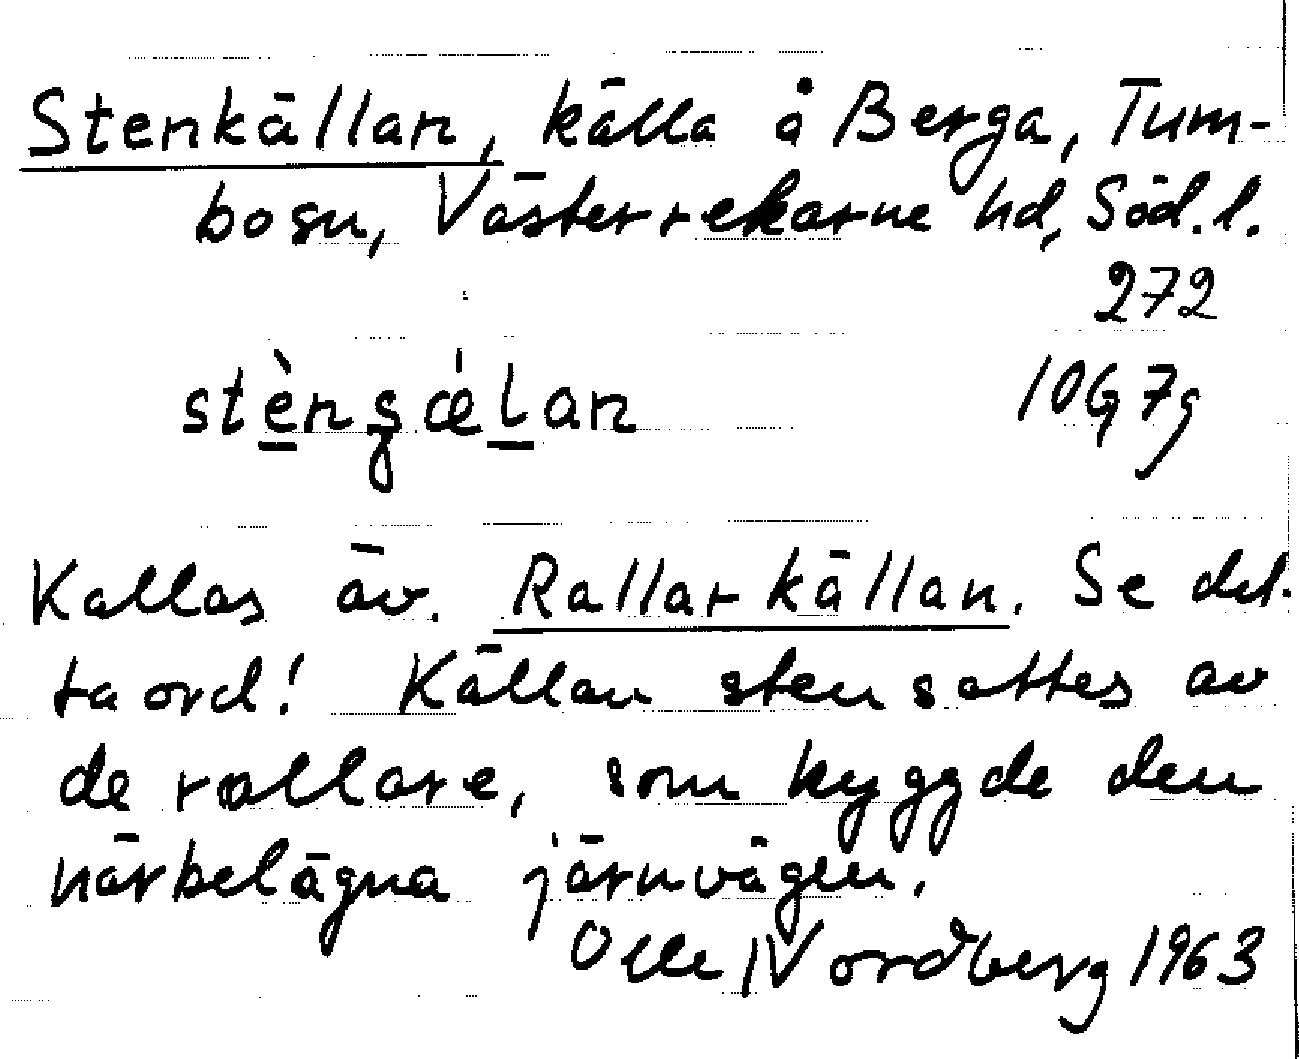 Stenkällan, källa å Berga, Tum-
bo sn, Västerrekarne hd, Söd. l.
272
10G 7g
Kallas äv. Rallarkällan. Se det-
ta ord! Källan stensattes av
de rallare, som byggde den
närbelägna järnvägen.
Olle Nordberg 1963